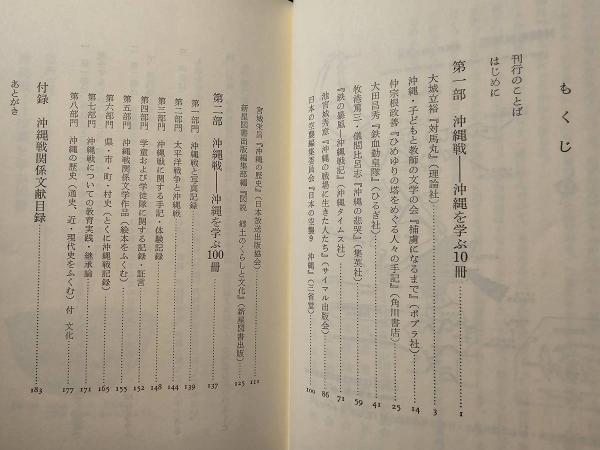 もくじ
刊行のことば
はじめに
第一部 沖縄戦――沖縄を学ぶ10冊 1
大城立裕『対馬丸』(理論社) 3
沖縄・子どもと教師の文学の会『捕虜になるまで』(ポプラ社) 14
仲宗根政善『ひめゆりの塔をめぐる人々の手記』(角川書店) 25
大田昌秀『鉄血勤皇隊』(ひるぎ社) 41
牧港篤三・儀間比呂志『沖縄の悲哭』(集英社) 59
『鉄の暴風―沖縄戦記』(沖縄タイムス社) 71
池宮城秀意『沖縄の戦場に生きた人たち』(サイマル出版会) 86
日本の空襲編集委員会『日本の空襲9 沖縄』(三省堂) 100
宮城栄昌『沖縄の歴史』(日本放送出版協会) 111
新星図書出版編集部編『図説 郷土のくらしと文化』(新星図書出版) 125
第二部 沖縄戦――沖縄を学ぶ100冊 137
第一部門 沖縄戦と写真記録 139
第二部門 太平洋戦争と沖縄戦 144
第三部門 沖縄戦に関する手記・体験記録 148
第四部門 学童および学徒隊に関する記録・証言 152
第五部門 沖縄戦関係文学作品(絵本をふくむ) 155
第六部門 県・市・町・村史(とくに沖縄戦記録) 165
第七部門 沖縄戦についての教育実践・継承論 171
第八部門 沖縄の歴史(通史、近・現代史をふくむ)付 文化 177
付録 沖縄戦関係文献目録 183
あとがき